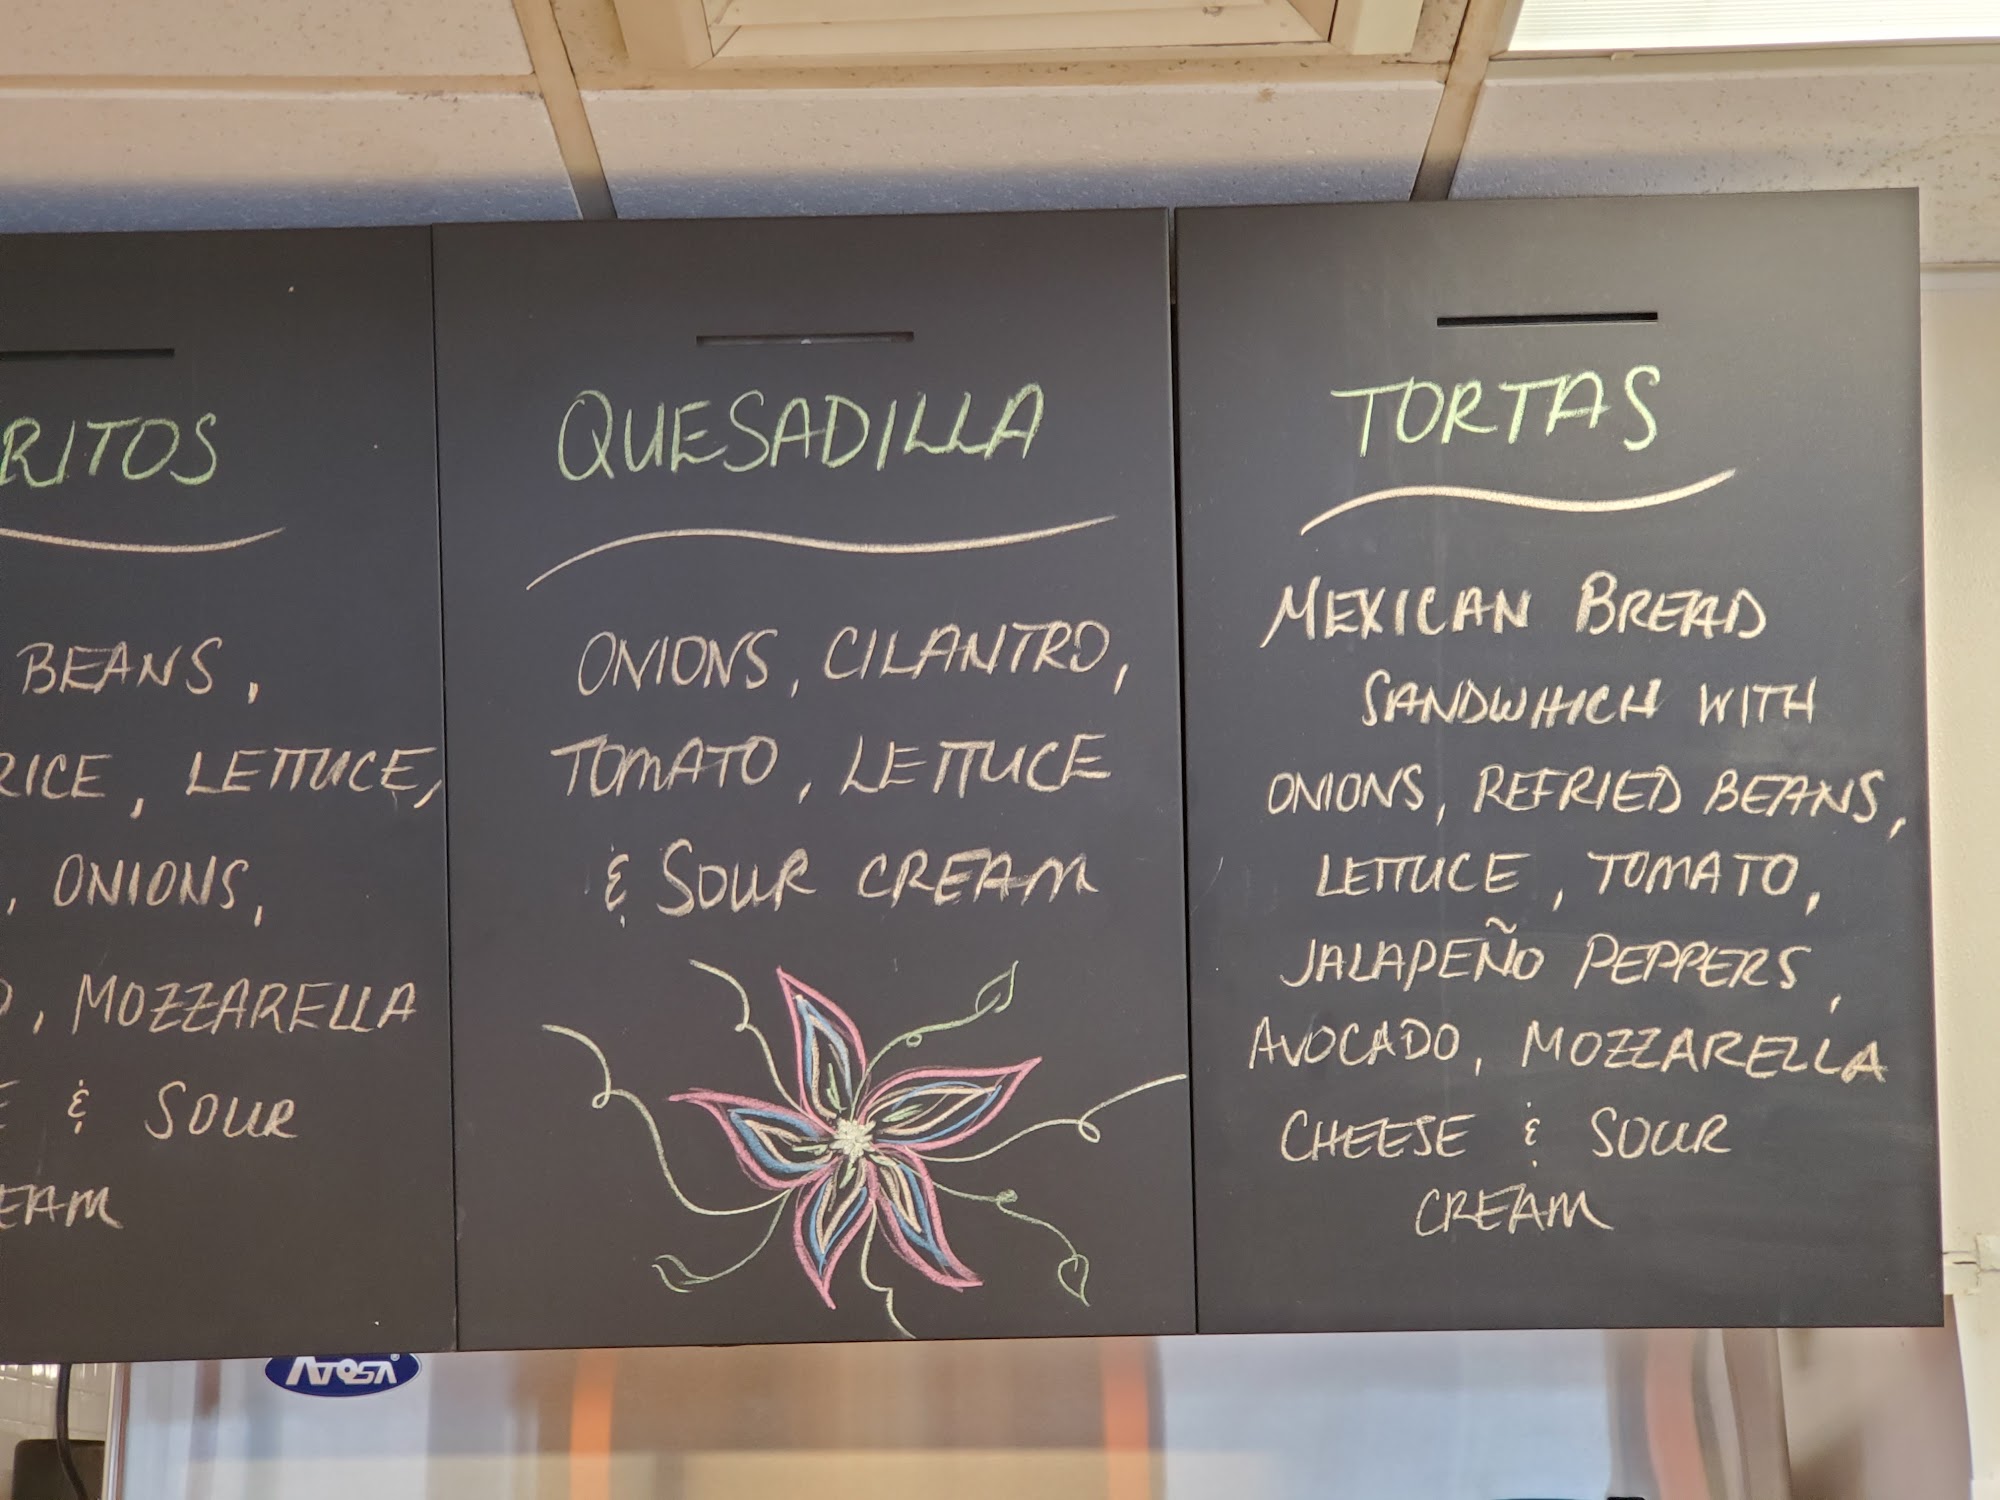 RITOS
BEANS,
RICE, LETTUCE,
, ONIONS,
, MOZZARELLA
& SOUR
EAM
QUESADILLA
ONIONS, CILANTRO,
TOMATO, LETTUCE
& SOUR CREAM
TORTAS
MEXICAN BREAD
SANDWHICH WITH
ONIONS, REFRIED BEANS,
LETTUCE, TOMATO,
JALAPEÑO PEPPERS,
AVOCADO, MOZZARELLA
CHEESE & SOUR
CREAM
ATOSA